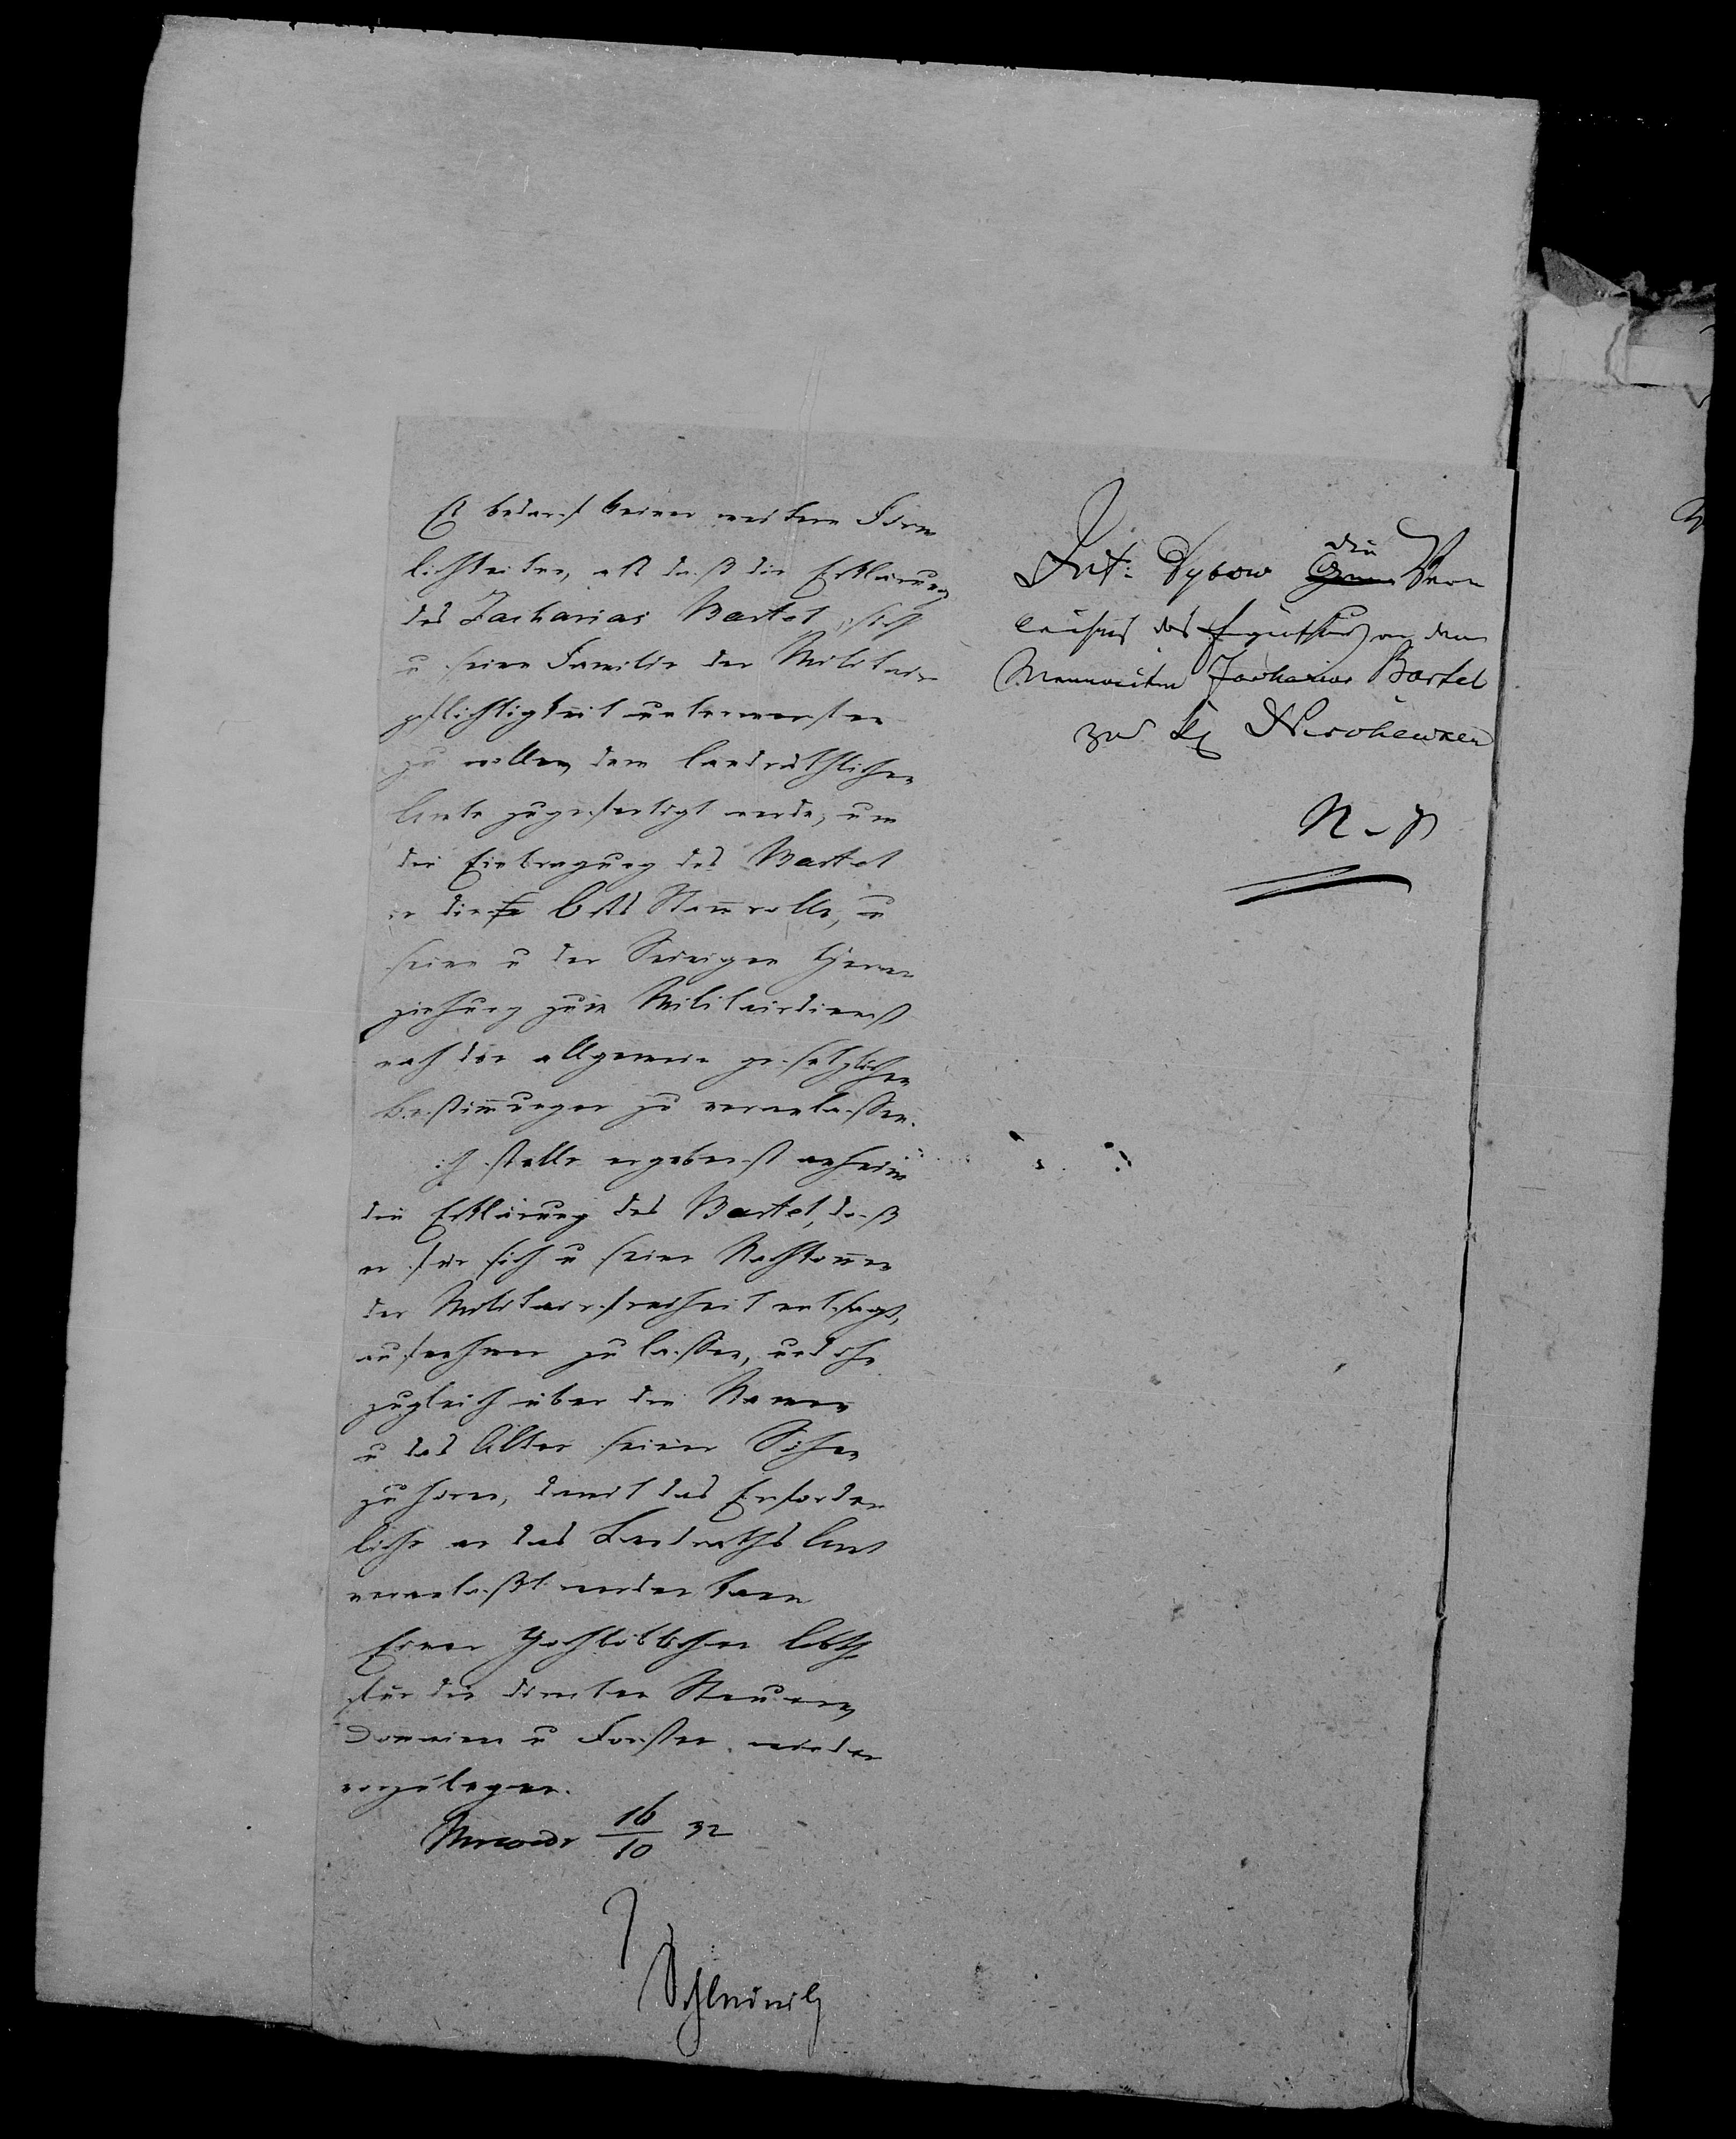 Es bedarf keiner weitern Förm
lichkeiten, als daß die Erklärung
des Zacharias Bartel, sich
u seine Familie der Militair
pflichtigkeit unterwerfen
zu wollen, dem landräthlichen
Amte zugefertigt werde, um
die Eintragung des Bartel
in die Stammrolle, u
seine u der Seinigen Heran
ziehung zum Militairdienst
nach den allgemein gesetzlichen
Bestimmungen zu veranlassen.
Ich stelle ergebenst anheim
die Erklärung des Bartel, daß
er für sich u seine Nachkommen
der Militairfreiheit entsagt,
aufnehmen zu lassen, und ihn
zugleich über die Namen
u das Alter seiner Söhne
zu hören, damit das Erforder
liche an das Landraths Amt
veranlaßt werden kann
Einer Hochlöblichen Abth.
für die direkten Steuern,
Domainen u Forsten wieder
vorzulegen.
16/10 32
Int: Dybow die Ver
des an den
Mennoniten Zacharias Bartel
zu